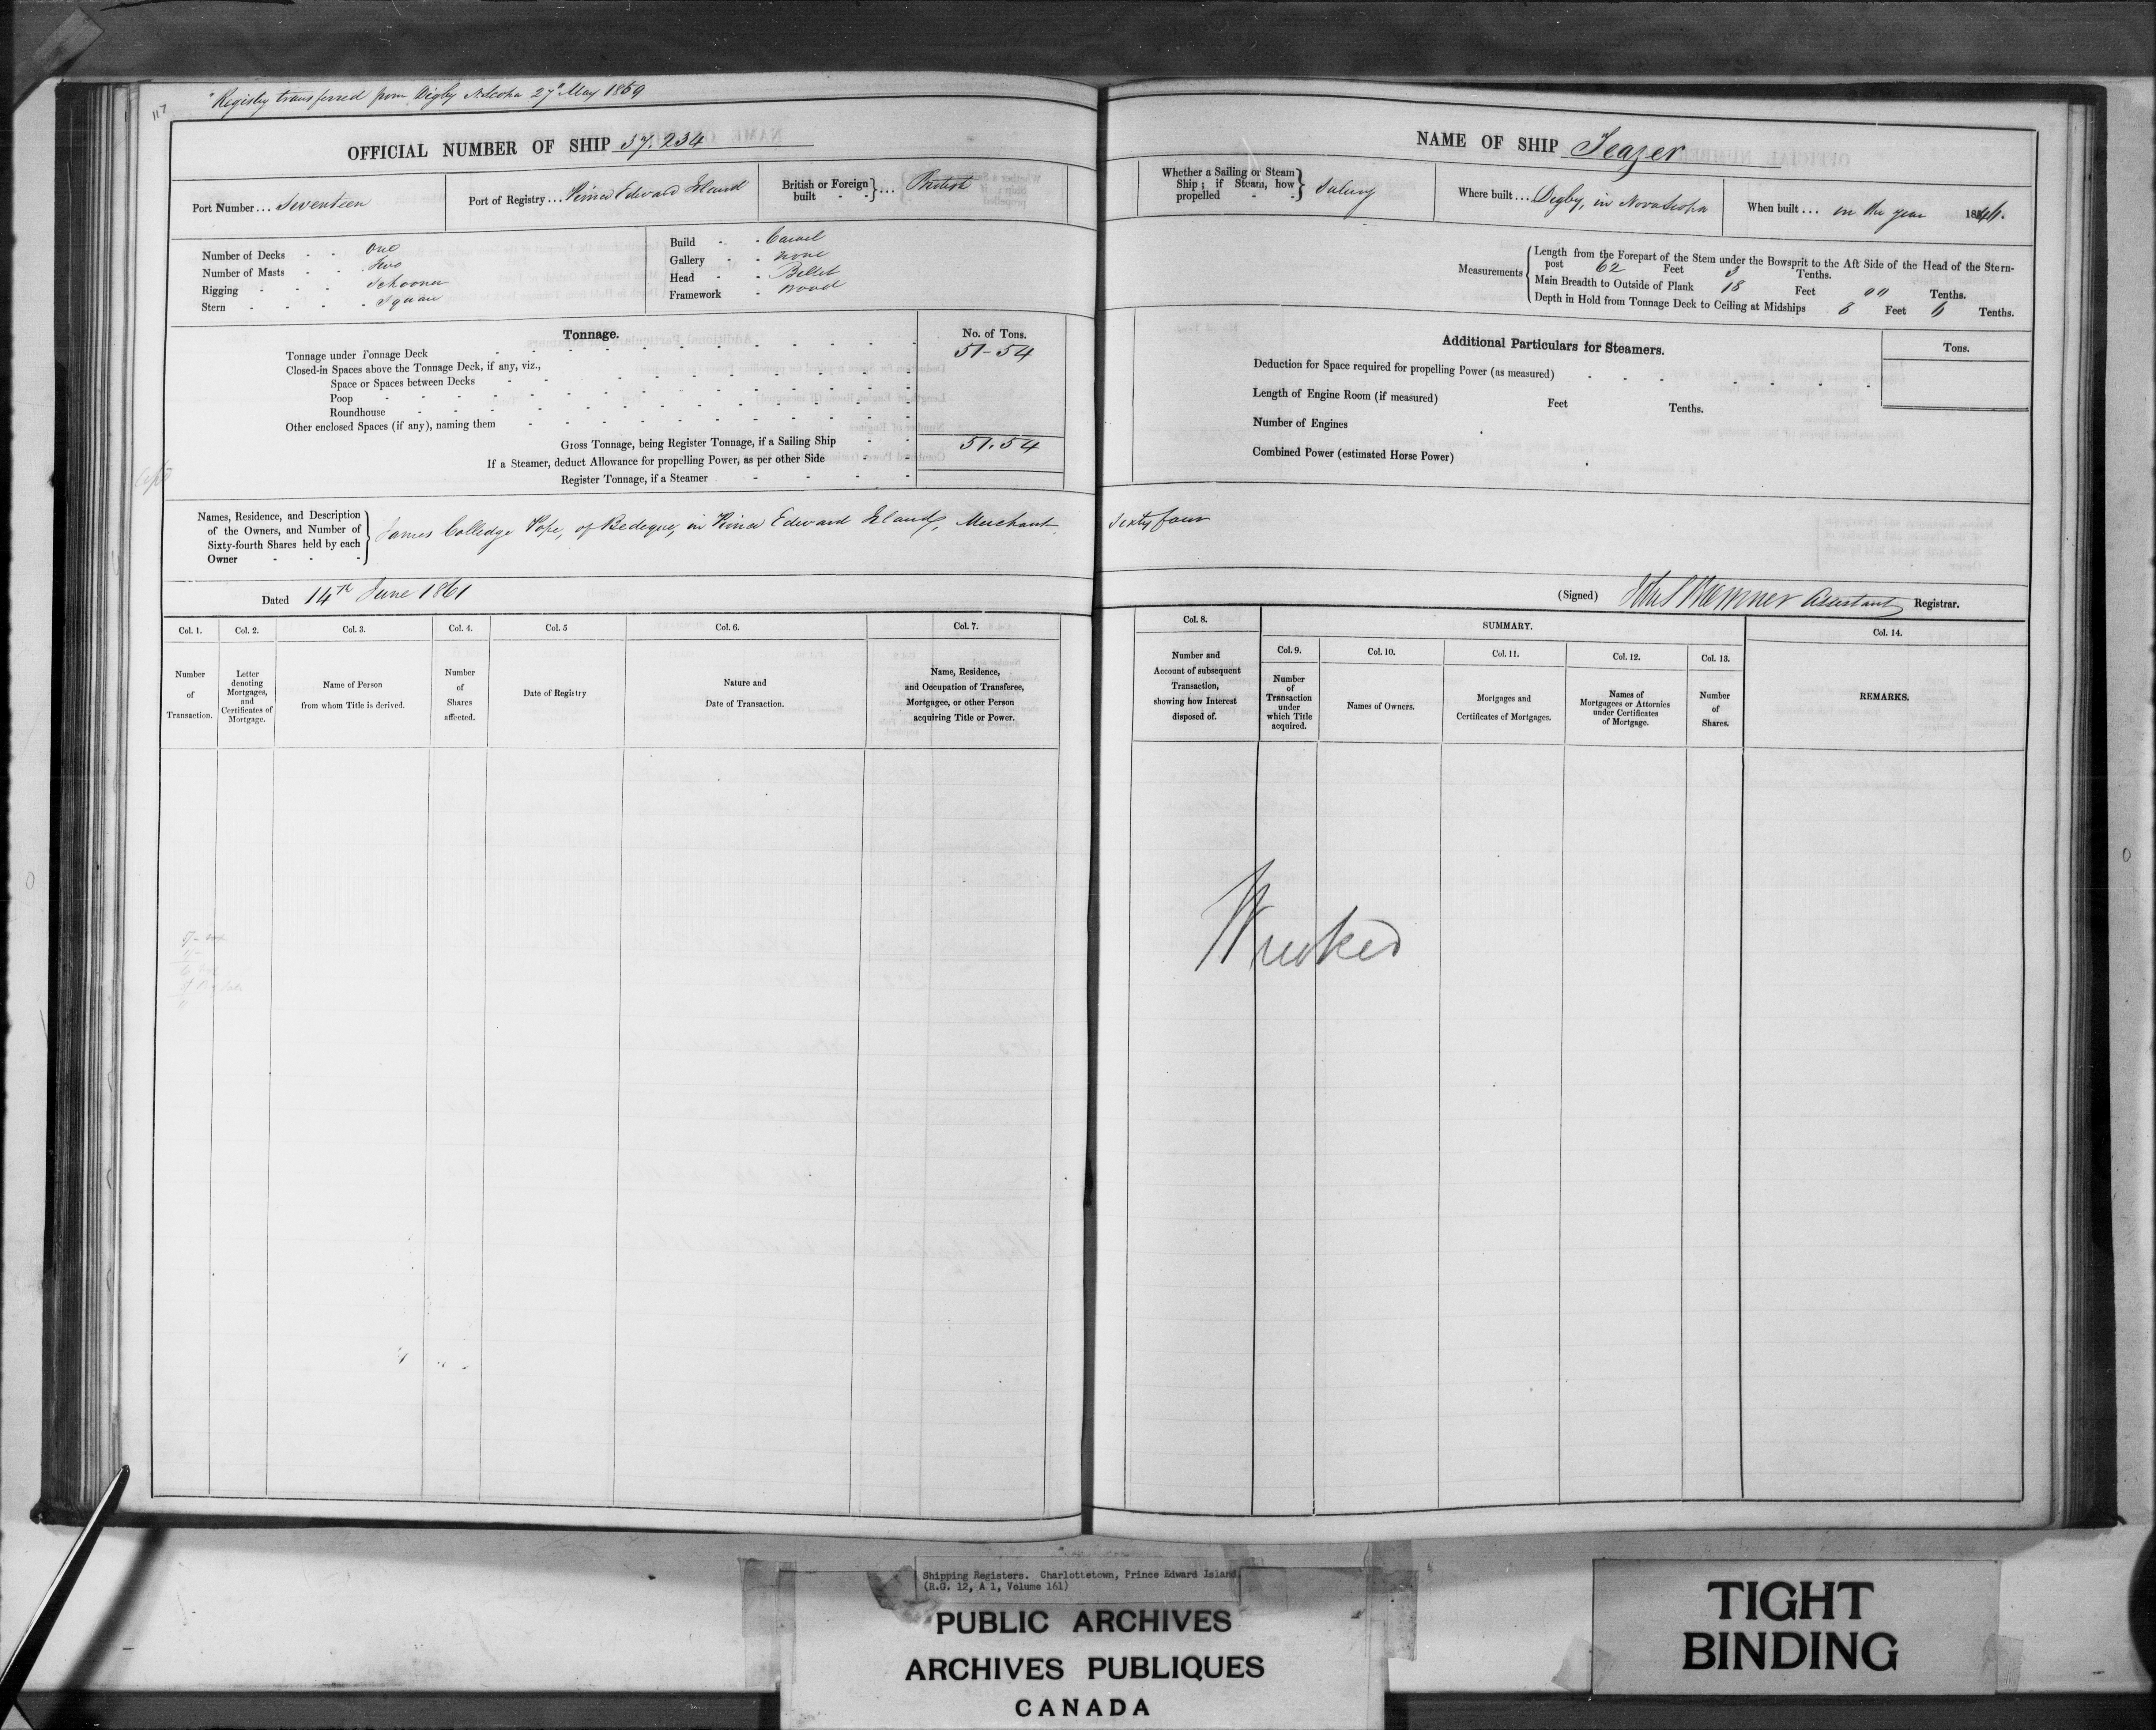 117
Registry transferred from Digby N. Scotia 27th May 1859
OFFICIAL NUMBER OF SHIP 37.234
Port Number ... Seventeen
Port of Registry ... Prince Edward Island
British or Foreign built - - } ... British
Number of Decks - - One
Number of Masts - - Two
Rigging - - - Schooner
Stern - - - - Square
Build - - Carvel
Gallery - - none
Head - - Billet
Framework - Wood
Tonnage.
No. of Tons.
Tonnage under Tonnage Deck 51-54
Closed-in Spaces above the Tonnage Deck, if any, viz.,
Space or Spaces between Decks
Poop
Roundhouse
Other enclosed Spaces (if any), naming them
Gross Tonnage, being Register Tonnage, if a Sailing Ship 51.54
If a Steamer, deduct Allowance for propelling Power, as per other Side
Register Tonnage, if a Steamer
Names, Residence, and Description of the Owners, and Number of Sixty-fourth Shares held by each Owner - - - } James Colledge Pope, of Bedeque, in Prince Edward Island, Merchant,
Dated 14th June 1861
Col. 1. Col. 2. Col. 3. Col. 4. Col. 5 Col. 6. Col. 7.
Number of Transaction.
Letter denoting Mortgages, and Certificates of Mortgage.
Name of Person from whom Title is derived.
Number of Shares affected.
Date of Registry
Nature and Date of Transaction.
Name, Residence, and Occupation of Transferee, Mortgagee, or other Person acquiring Title or Power.
NAME OF SHIP Teazer
Whether a Sailing or Steam Ship; if Steam, how propelled - - } Sailing
Where built ... Digby, in Nova Scotia
When built ... in the year 1846.
Measurements
Length from the Forepart of the Stem under the Bowsprit to the Aft Side of the Head of the Stern-
post 62 Feet 3 Tenths.
Main Breadth to Outside of Plank 18 Feet 00 Tenths.
Depth in Hold from Tonnage Deck to Ceiling at Midships 8 Feet 6 Tenths.
Additional Particulars for Steamers.
Tons.
Deduction for Space required for propelling Power (as measured)
Length of Engine Room (if measured) Feet Tenths.
Number of Engines
Combined Power (estimated Horse Power)
Sixty four
(Signed) Assistant Registrar.
Col. 8.
Number and Account of subsequent Transaction, showing how Interest disposed of.
SUMMARY.
Col. 9. Col. 10. Col. 11. Col. 12. Col. 13.
Number of Transaction under which Title acquired.
Names of Owners.
Mortgages and Certificates of Mortgages.
Names of Mortgagees or Attornies under Certificates of Mortgage.
Number of Shares.
Col. 14.
REMARKS.
Wrecked
Shipping Registers. Charlottetown, Prince Edward Island.
(R.G. 12, A 1, Volume 161)
PUBLIC ARCHIVES
ARCHIVES PUBLIQUES
CANADA
TIGHT
BINDING